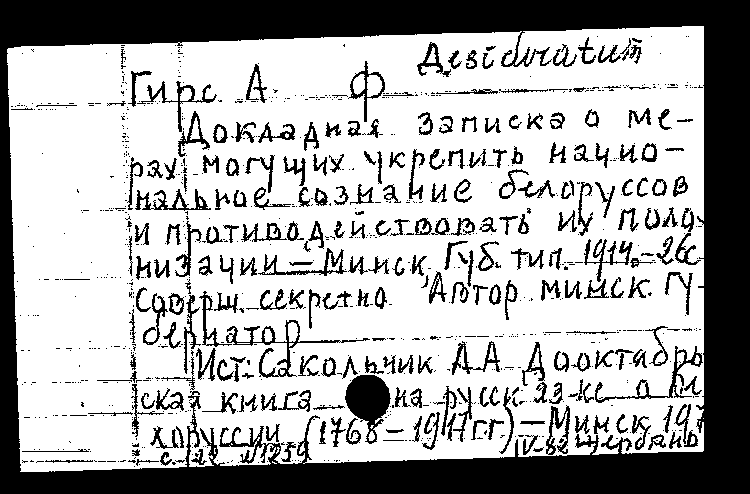 Desideratum
Гирс А. Ф
Докладная записка о ме-
рах могущих укрепить нацио-
нальное сознание белоруссов
и противодействовать их поло-
низации – Минск Губ. тип. 1914. – 26с
Соверш. секретно Автор минск. гу-
бернатор
Ист: Сакольчик А А Дооктябрь
ская книга на русск яз-ке о
лоруссии (1768 – 1917 гг) – Минск 197
с. 122 №1259 IV-82